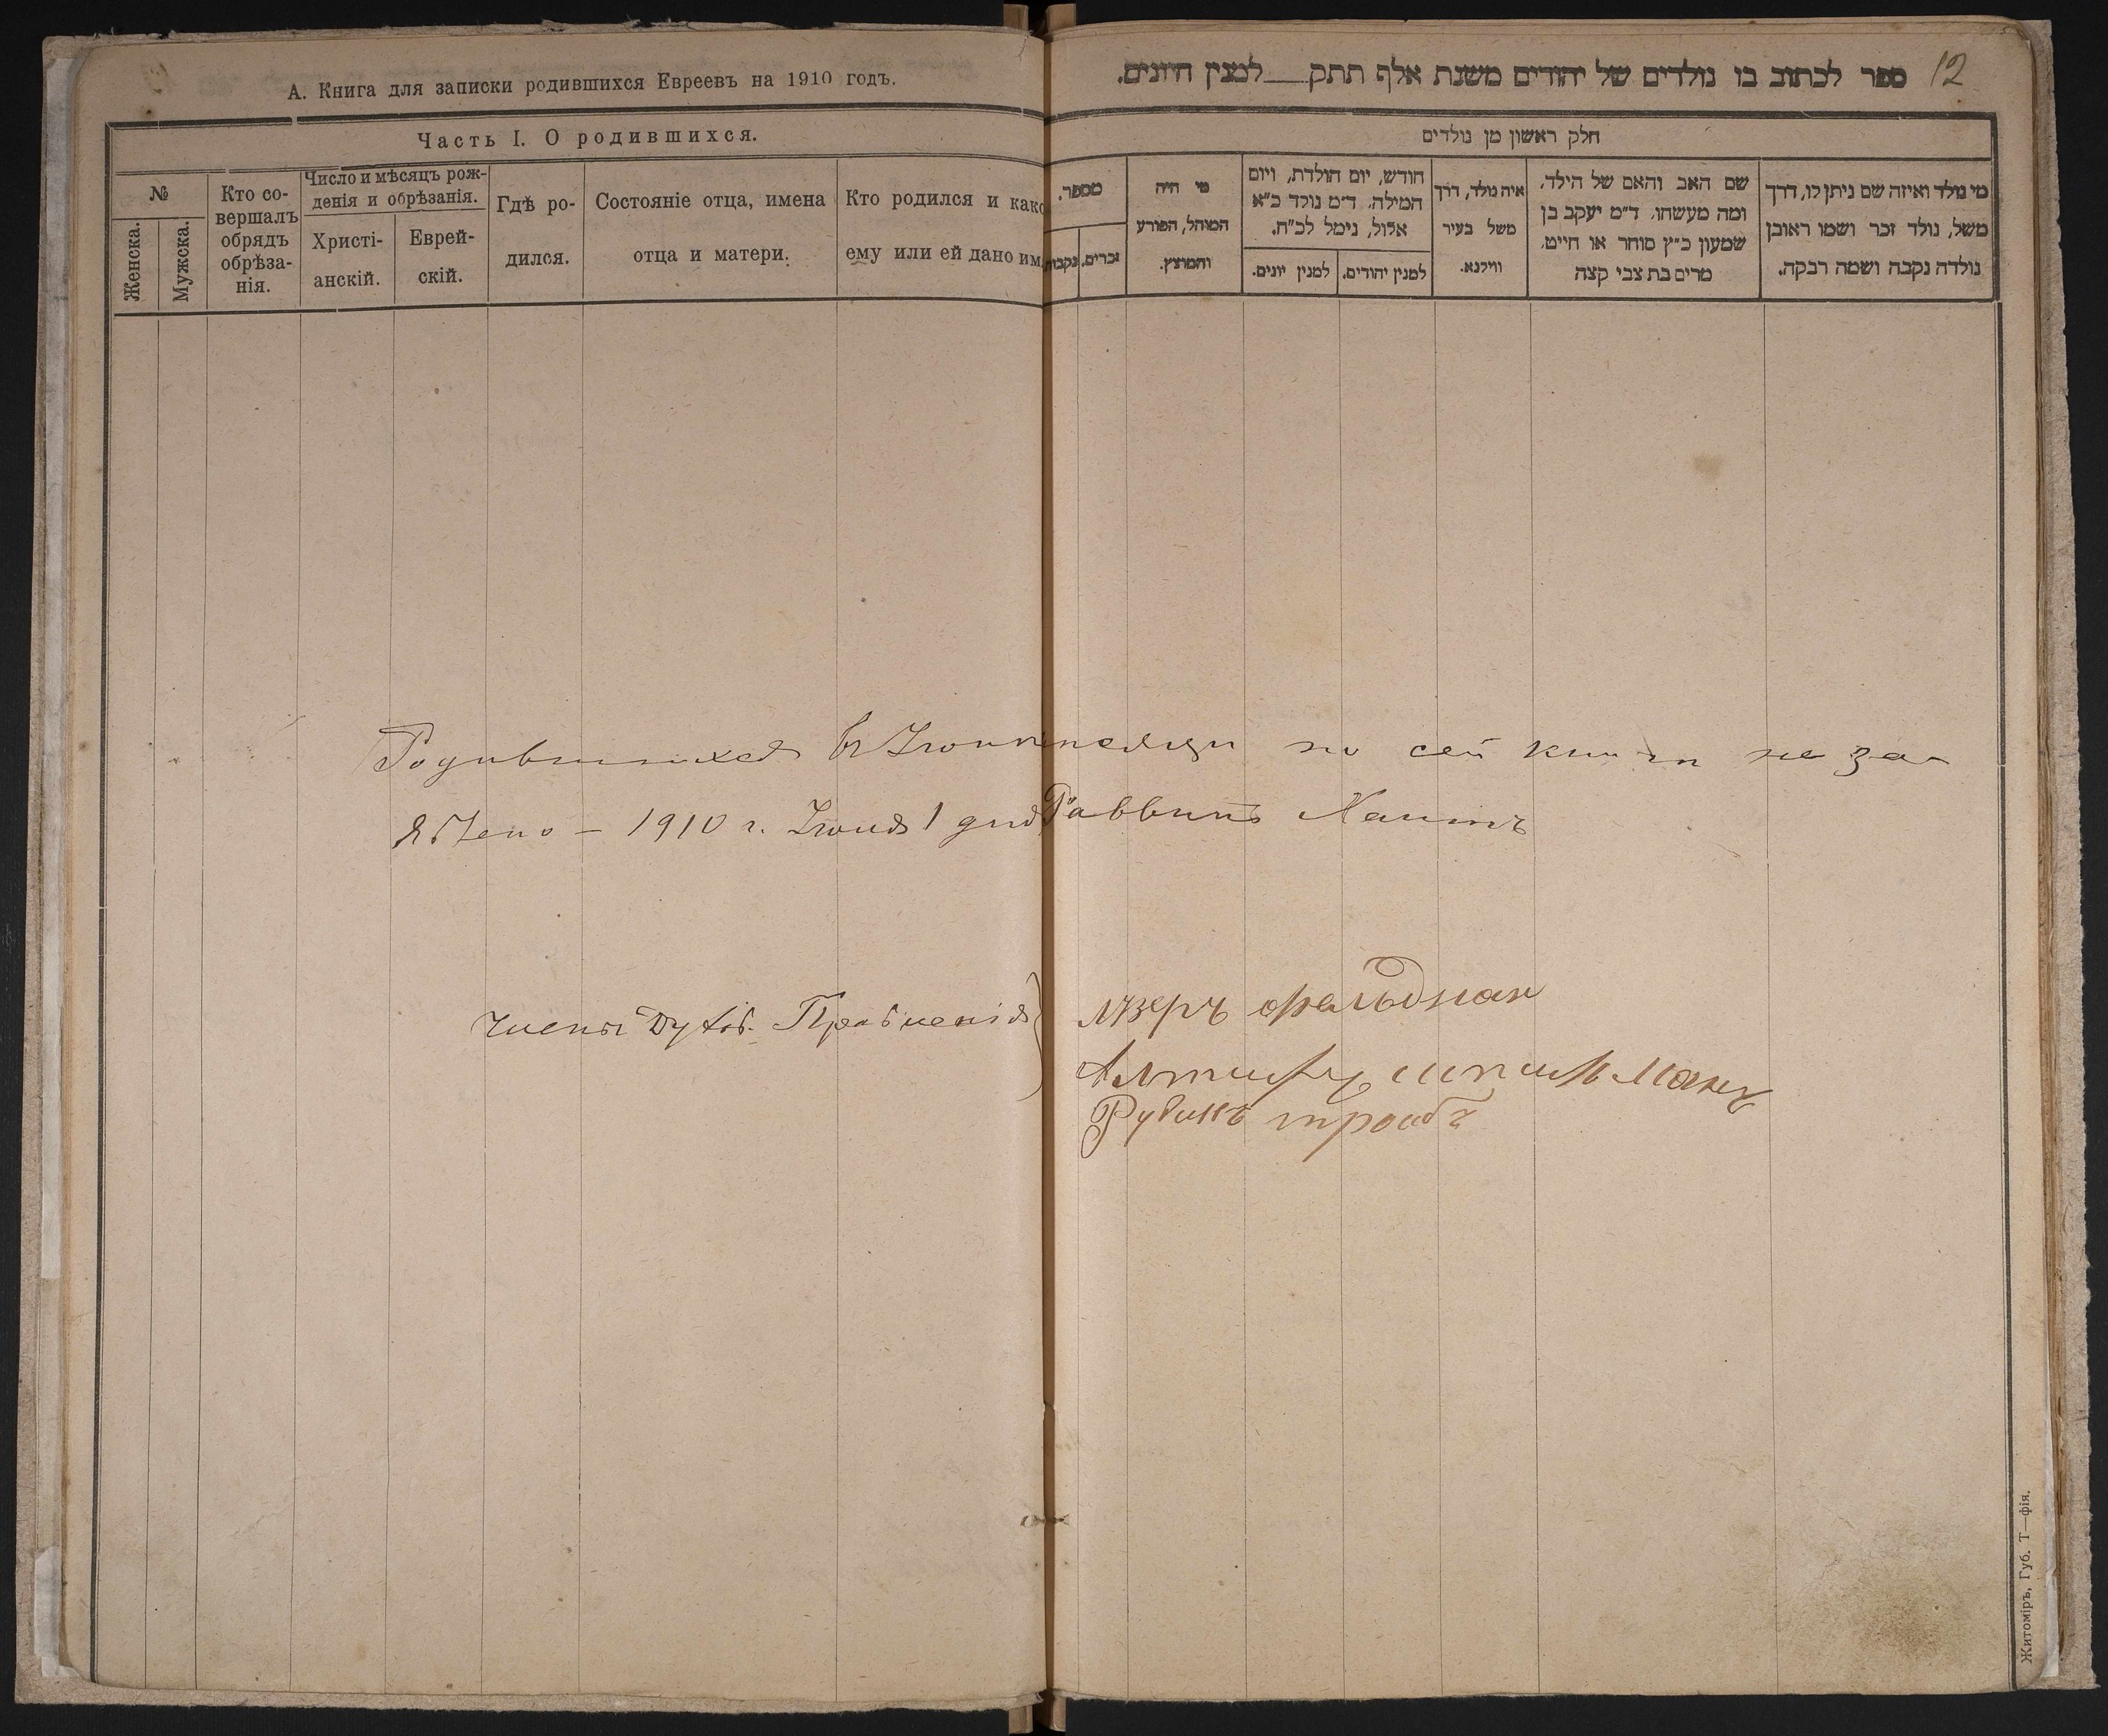 А. Книга для записки родившихся Евреевъ на 1910 годъ.
Часть I. О родившихся.
№
Женска.
Мужска.
Кто со-
вершалъ
обрядъ
обрѣза-
нія.
Число и мѣсяцъ рож-
денія и обрѣзанія.
Христі-
анскій.
Еврей-
скій.
Гдѣ ро-
дился.
Состояніе отца, имена
отца и матери.
Кто родился и како
ему или ей дано им
12
ספר לכתוב בו נולדים של יהודים משנת אלף תתק למנין היונים.
חלק ראשון מן נולדים
מי נולד ואיזה שם ניתן לו, דרך
משל, נולד זכר ושמו ראובן
נולדה נקבה ושמה רבקה.
שם האב והאם של הילד,
ומה מעשהו. ד״מ יעקב בן
שמעון כ״ץ סוחר או חייט,
מרים בת צבי קצה
איה נולד, דרך
משל בעיר
ווילנא.
חודש, יום הולדת, ויום
המילה, ד״מ נולד כ״א
אלול, נימל לכ״ח.
למנין יהודים.
למנין יונים.
מי היה
המוהל, הפורע
והמוצץ.
מספר.
זכרים.
נקבות
Родившихся въ Іюнѣ мѣсяцѣ по сей книги не за-
явлено — 1910 г. Іюля 1 дня Раввинъ Хаитъ
Члены Духов. Правленія
Лезеръ Фельдман
Шпильманъ
Рувинъ
Житоміръ, Губ. Т—фія.